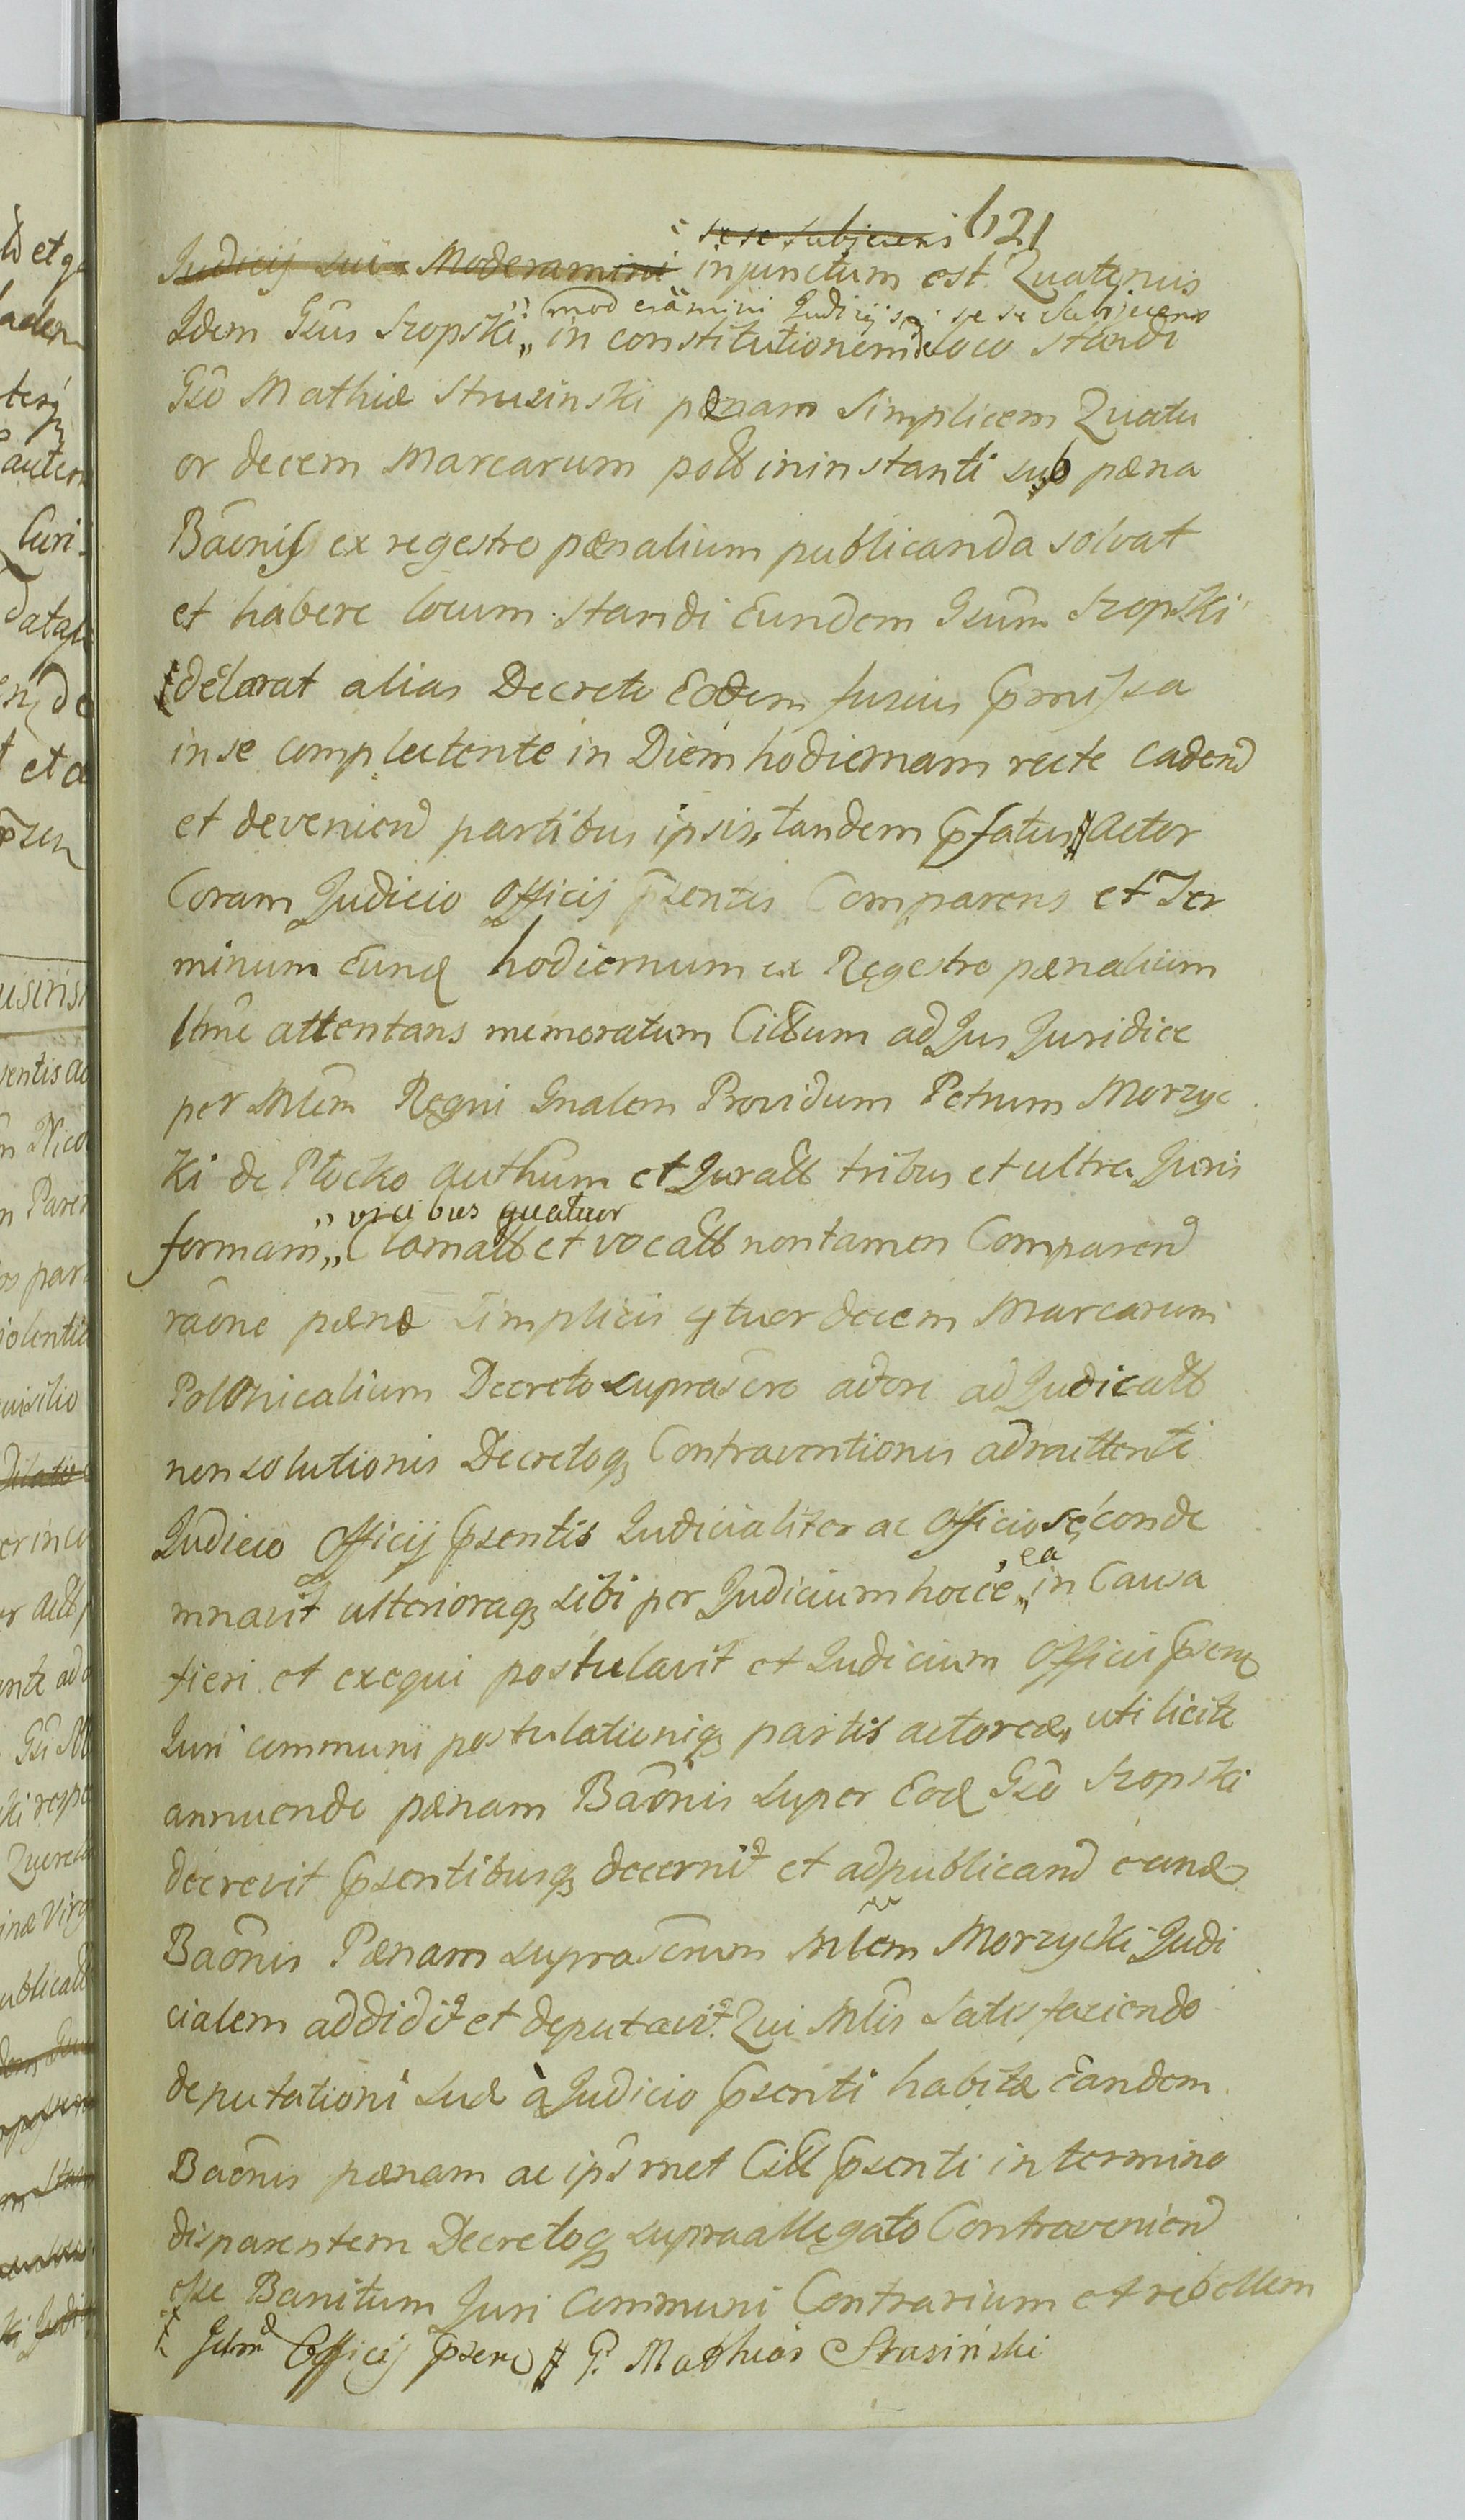 621
se se subjiciens
Judicij sui Moderamini injunctum est Quatenus
moderamini Judicij sui se se subjiciens
Idem Gsus Szopski „ in constitutionem de loco standi
Gso Mathiæ Strusinski pænam simplicem Quatu
or decem Marcarum poll in instanti sub pæna
Baonis ex regestro pænalium publicanda solvat
et habere locum standi Eundem Gsum Szopski
declarat alias Decreto Eodem fusius pmissa
in se complectente in Diem hodiernam recte cadend
et deveniend partibus ipsis, tandem pfatus # Actor
Coram Judicio Officij psentis Comparens et Ter
minum Eund hodiernum ex Regestro pænalium
ltme attentans memoratum Citatum ad Jus Juridice
per Mlem Regni Gnalem Providum Petrum Morzyc
ki de Płocko authum et Juratt tribus et ultra Juris
„ vicibus quatuor
formam „ Clamatt et vocatt non tamen Comparend
raone pænæ simplicis qtuor decem Marcarum
Polonicalium Decreto suprascro actori adjudicatt
non solutionis Decretoq Contraventionis admittenti
Judicio Officij psentis Judicialiter ac Officiose conde
mnavit ulterioraq sibi per Judicium hocce „ ea in Causa
fieri et exequi postulavit et Judicium Officij psens
Juri communi postulationiq partis actoreæ, uti licitæ
annuendo pænam Baonis super Eod Gso Szopski
decrevit psentibusq decernit et ad publicand eand
Baonis Pænam suprascrum Mlem Morzycki Judi
cialem addidit et deputavit. Qui Mlis satisfaciendo
deputationi suæ à Judicio psenti habitæ Eandem
Baonis pænam ac ipsmet Citt psenti in termino
disparentem Decretoq supraallegato Contraveniend
esse Banitum Juri Communi Contrarium et rebellem
Officij psens # G. Mathias Strusiński